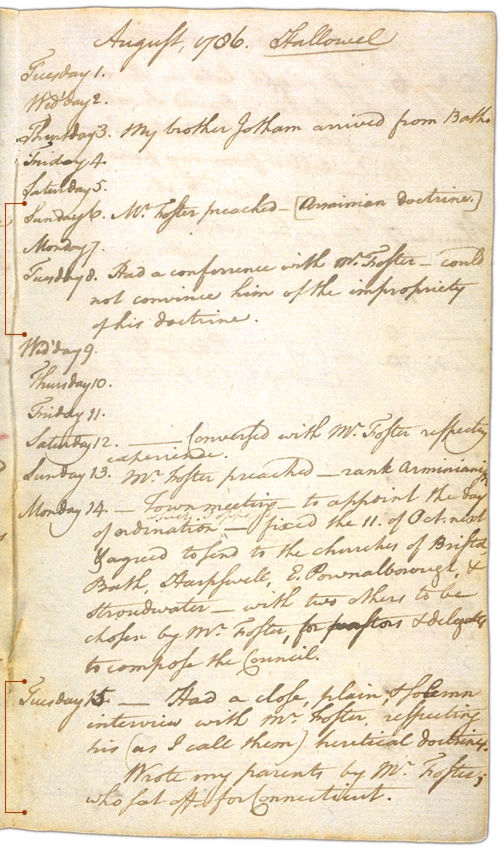 August, 1786. Hallowel
Tuesday 1.
Wed'day 2.
Thursday 3. My brother Jotham arrived from Bath.
Friday 4.
Saturday 5.
Sunday 6. Mr. Foster preached – [Arminian doctrine.]
Monday 7.
Tuesday 8. Had a conferrence with Mr. Foster – could
not convince him of the impropriety
of his doctrine.
Wed'day 9.
Thursday 10.
Friday 11.
Saturday 12. — Conversed with Mr. Foster respecting
experience.
Sunday 13. Mr. Foster preached – rank Arminianism
Monday 14. – Town meeting – to appoint the day
of ordination – fixed the 11. of Oct. next
& agreed to send to the churches of Bristol
Bath, Harpswell, E. Pownalborough, &
Stroudwater – with two others to be
chosen by Mr. Foster, for pastors & delegates
to compose the Council.
Tuesday 15 — Had a close, plain, & solemn
interview with Mr. Foster, respecting
his (as I call them) heretical doctrines.
Wrote my parents by Mr. Foster,
who sat off for Connecticut.